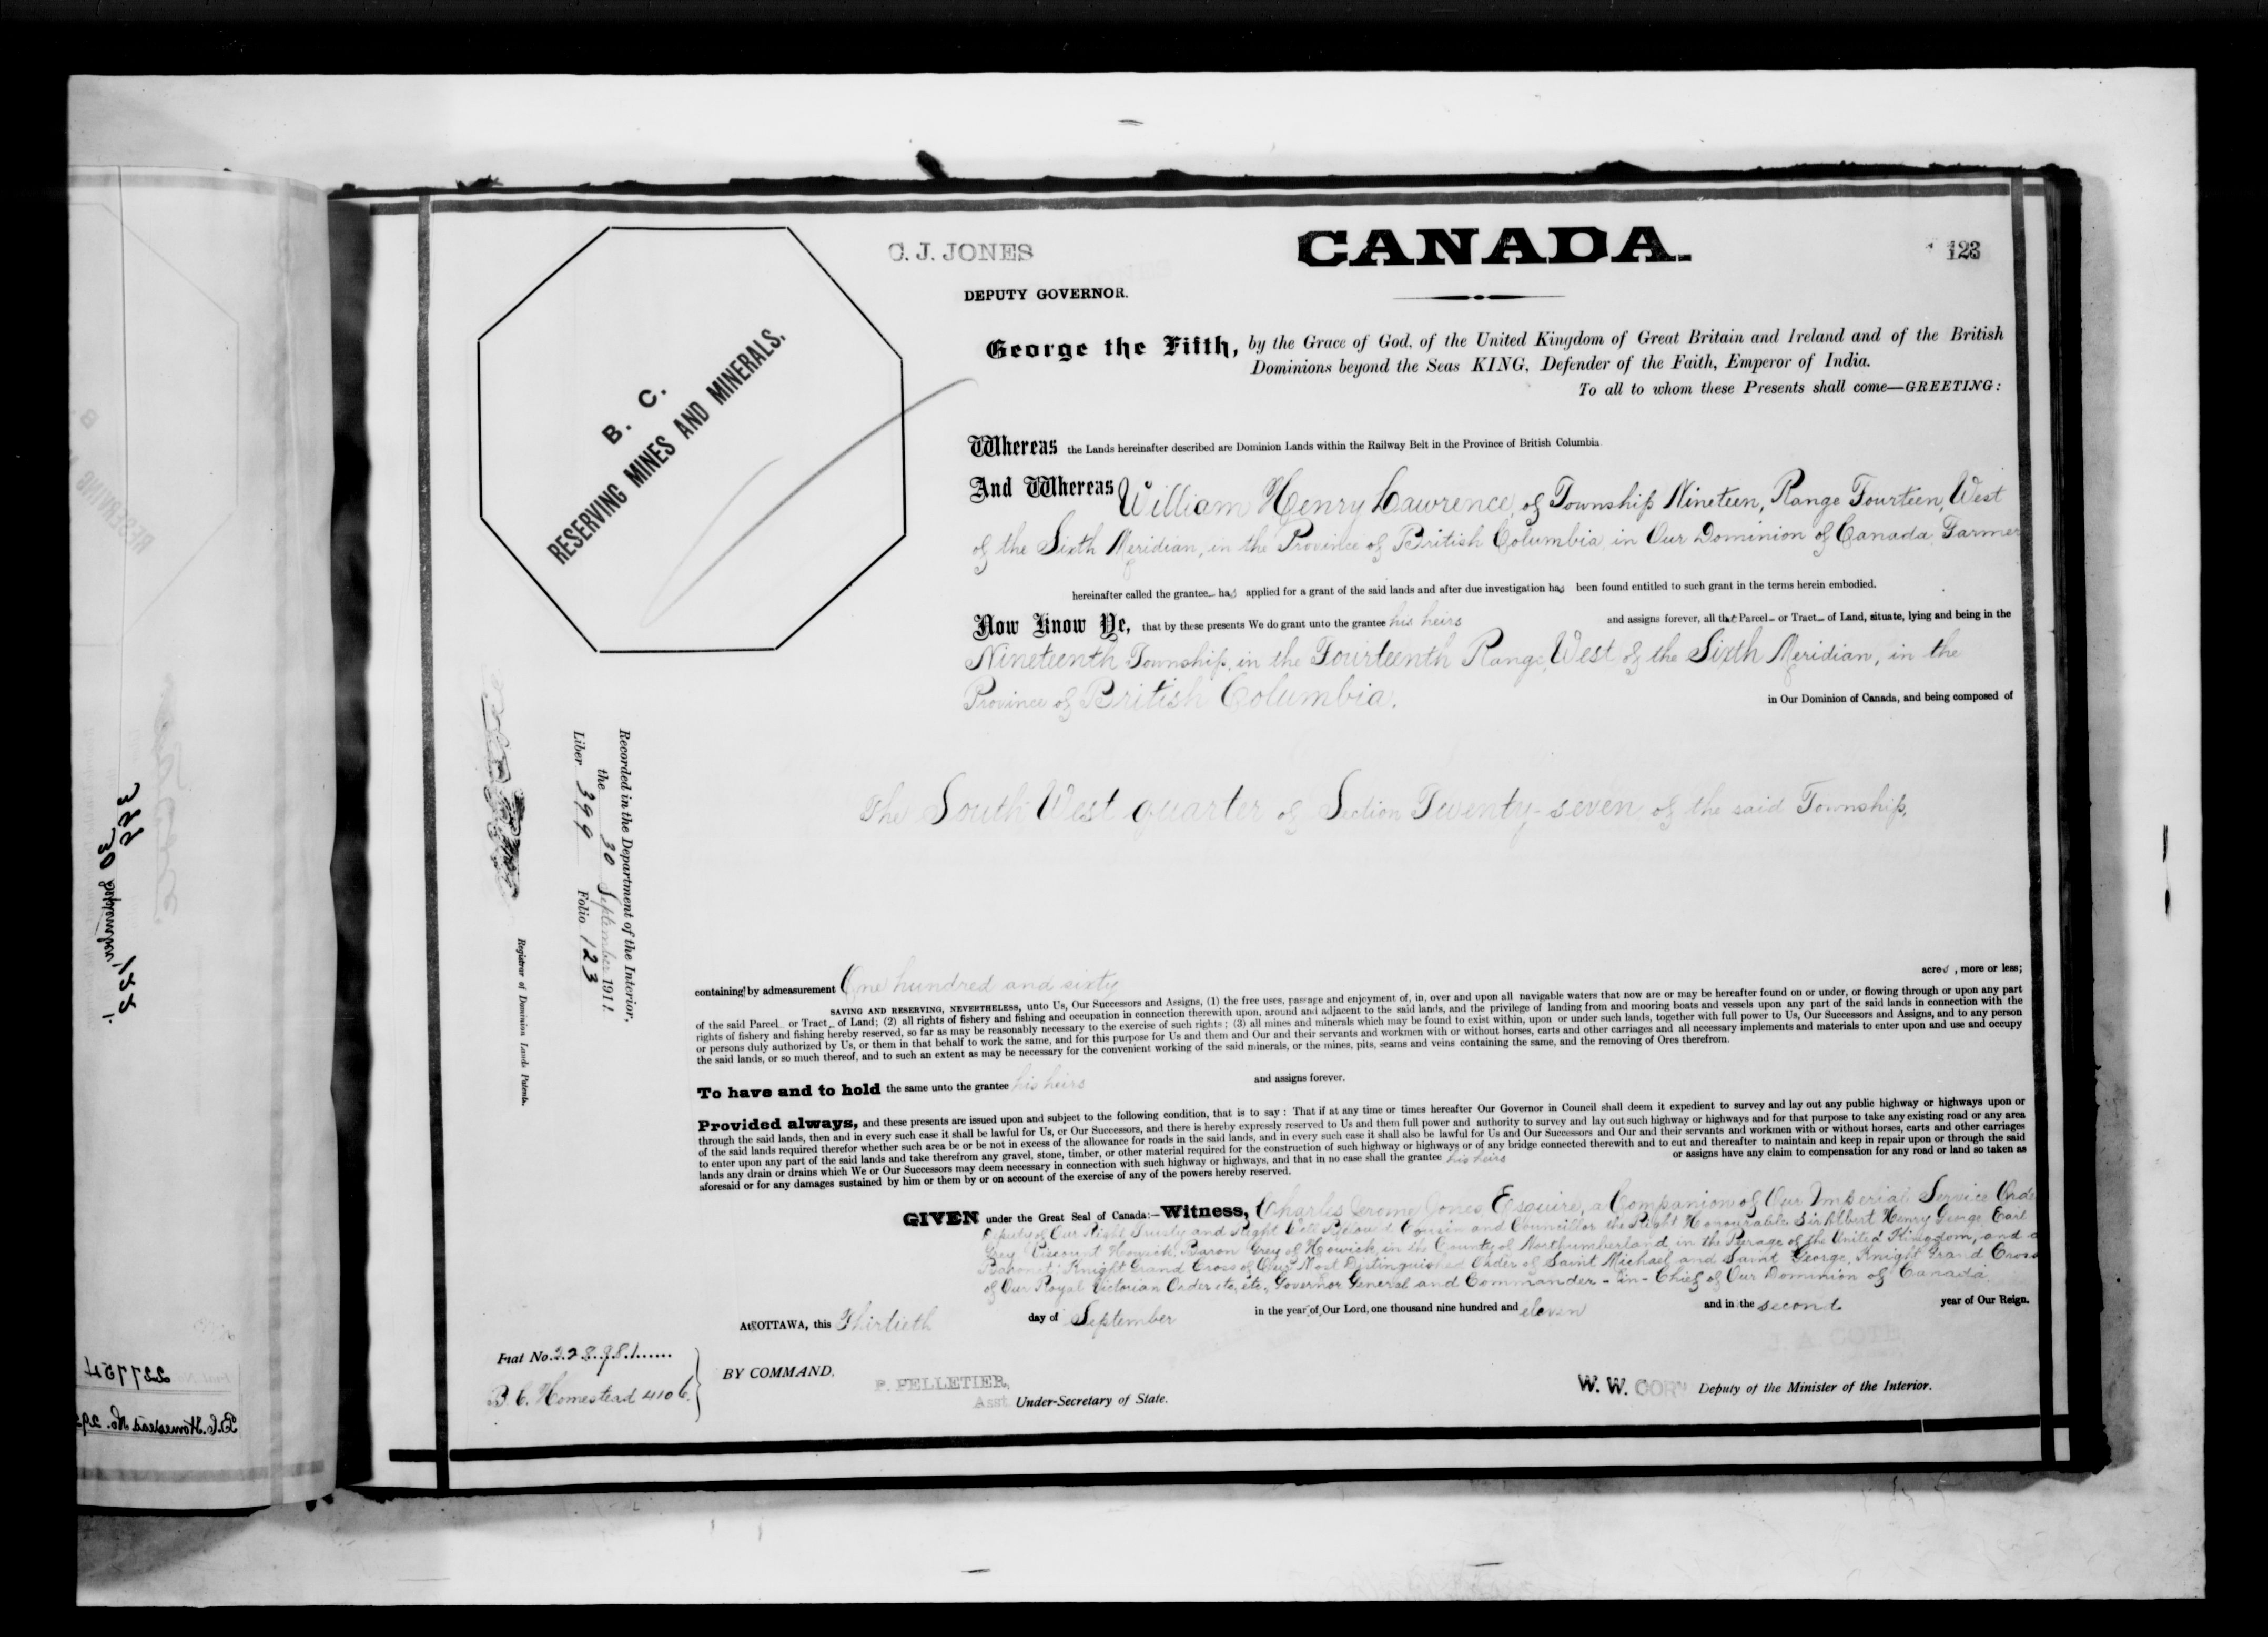 C. J. JONES
CANADA.
123
DEPUTY GOVERNOR.
George the Fifth, by the Grace of God, of the United Kingdom of Great Britain and Ireland and of the British
Dominions beyond the Seas KING, Defender of the Faith, Emperor of India.
To all to whom these Presents shall come—GREETING:
B. C.
RESERVING MINES AND MINERALS.
Whereas the Lands hereinafter described are Dominion Lands within the Railway Belt in the Province of British Columbia
And Whereas William Henry Lawrence, of Township Nineteen, Range Fourteen, West
of the Sixth Meridian, in the Province of British Columbia in Our Dominion of Canada, Farmer
hereinafter called the grantee has applied for a grant of the said lands and after due investigation has been found entitled to such grant in the terms herein embodied.
Now Know Ye, that by these presents We do grant unto the grantee his heirs and assigns forever, all that Parcel or Tract of Land, situate, lying and being in the
Nineteenth Township, in the Fourteenth Range, West of the Sixth Meridian, in the
Province of British Columbia. in Our Dominion of Canada, and being composed of
The South West quarter of Section Twenty-seven of the said Township,
Recorded in the Department of the Interior,
the 30 September 1911
Liber 399 Folio 123
Registrar of Dominion Lands Patents.
containing by admeasurement One hundred and sixty acres, more or less;
SAVING AND RESERVING, NEVERTHELESS, unto Us, Our Successors and Assigns, (1) the free uses, passage and enjoyment of, in, over and upon all navigable waters that now are or may be hereafter found on or under, or flowing through or upon any part
of the said Parcel or Tract of Land; (2) all rights of fishery and fishing and occupation in connection therewith upon, around and adjacent to the said lands, and the privilege of landing from and mooring boats and vessels upon any part of the said lands in connection with the
rights of fishery and fishing hereby reserved, so far as may be reasonably necessary to the exercise of such rights; (3) all mines and minerals which may be found to exist within, upon or under such lands, together with full power to Us, Our Successors and Assigns, and to any person
or persons duly authorized by Us, or them in that behalf to work the same, and for this purpose for Us and them and Our and their servants and workmen with or without horses, carts and other carriages and all necessary implements and materials to enter upon and use and occupy
the said lands, or so much thereof, and to such an extent as may be necessary for the convenient working of the said minerals, or the mines, pits, seams and veins containing the same, and the removing of Ores therefrom.
To have and to hold the same unto the grantee his heirs and assigns forever.
Provided always, and these presents are issued upon and subject to the following condition, that is to say: That if at any time or times hereafter Our Governor in Council shall deem it expedient to survey and lay out any public highway or highways upon or
through the said lands, then and in every such case it shall be lawful for Us, or Our Successors, and there is hereby expressly reserved to Us and them full power and authority to survey and lay out such highway or highways and for that purpose to take any existing road or any area
of the said lands required therefor whether such area be or be not in excess of the allowance for roads in the said lands, and in every such case it shall also be lawful for Us and Our Successors and Our and their servants and workmen with or without horses, carts and other carriages
to enter upon any part of the said lands and take therefrom any gravel, stone, timber, or other material required for the construction of such highway or highways or of any bridge connected therewith and to cut and thereafter to maintain and keep in repair upon or through the said
lands any drain or drains which We or Our Successors may deem necessary in connection with such highway or highways, and that in no case shall the grantee his heirs or assigns have any claim to compensation for any road or land so taken as
aforesaid or for any damages sustained by him or them by or on account of the exercise of any of the powers hereby reserved.
GIVEN under the Great Seal of Canada:—Witness, Charles Jerome Jones Esquire, a Companion of Our Imperial Service Orde
Deputy of Our Right Trusty and Right Well Beloved Cousin and Councillor the Right Honourable Sir Albert Henry George, Earl
Grey Viscount Howick, Baron Grey of Howick, in the County of Northumberland, in the Peerage of the United Kingdom, and a
Baronet; Knight Grand Cross of Our Most Distinguished Order of Saint Michael and Saint George, Knight Grand Cross
of Our Royal Victorian Order etc, etc, Governor General and Commander-in-Chief of Our Dominion of Canada
At OTTAWA, this Thirtieth day of September in the year of Our Lord, one thousand nine hundred and eleven and in the second year of Our Reign.
J. A. COTE
Fiat No. 228981
B. C. Homestead 4106
BY COMMAND,
P. PELLETIER,
Asst Under-Secretary of State.
W. W. CORY Deputy of the Minister of the Interior.
30 September
227754
B.C. Homestead No.